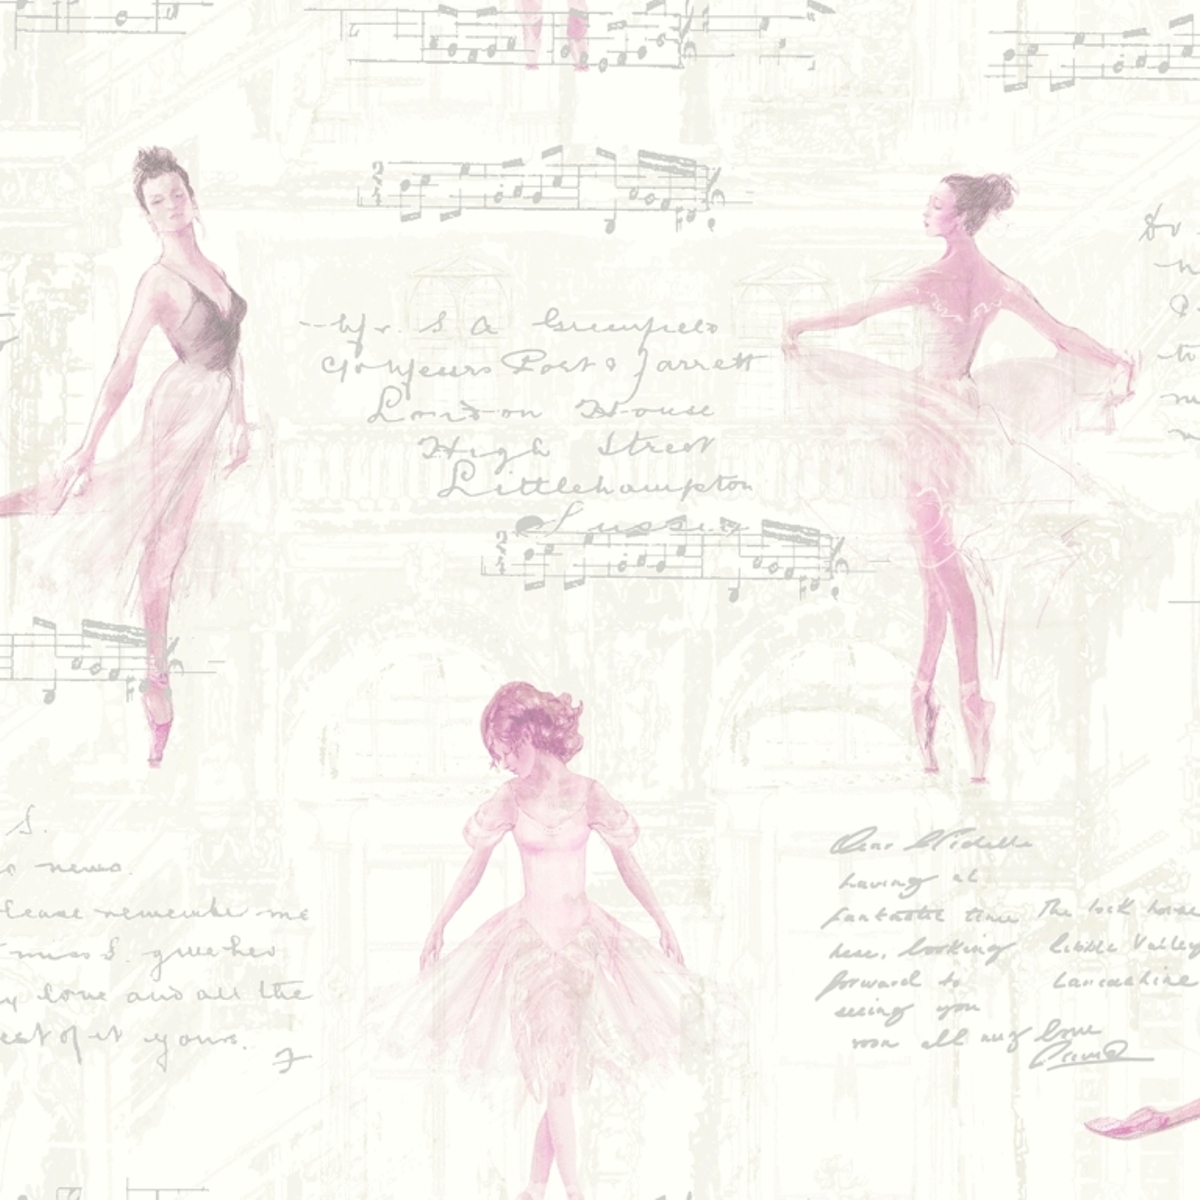 Mr. S A Greenfield
c/o Meurs Post & Jarrett
London House
High Street
Littlehampton
Sussex
S.
news.
Please remember me
miss S. give her
my love and all the
best of it yours.
Dear Michelle
having at
fantastic time
here, looking
forward to
seeing you
soon all my love
The lock house
Ribble Valley
Lancashire